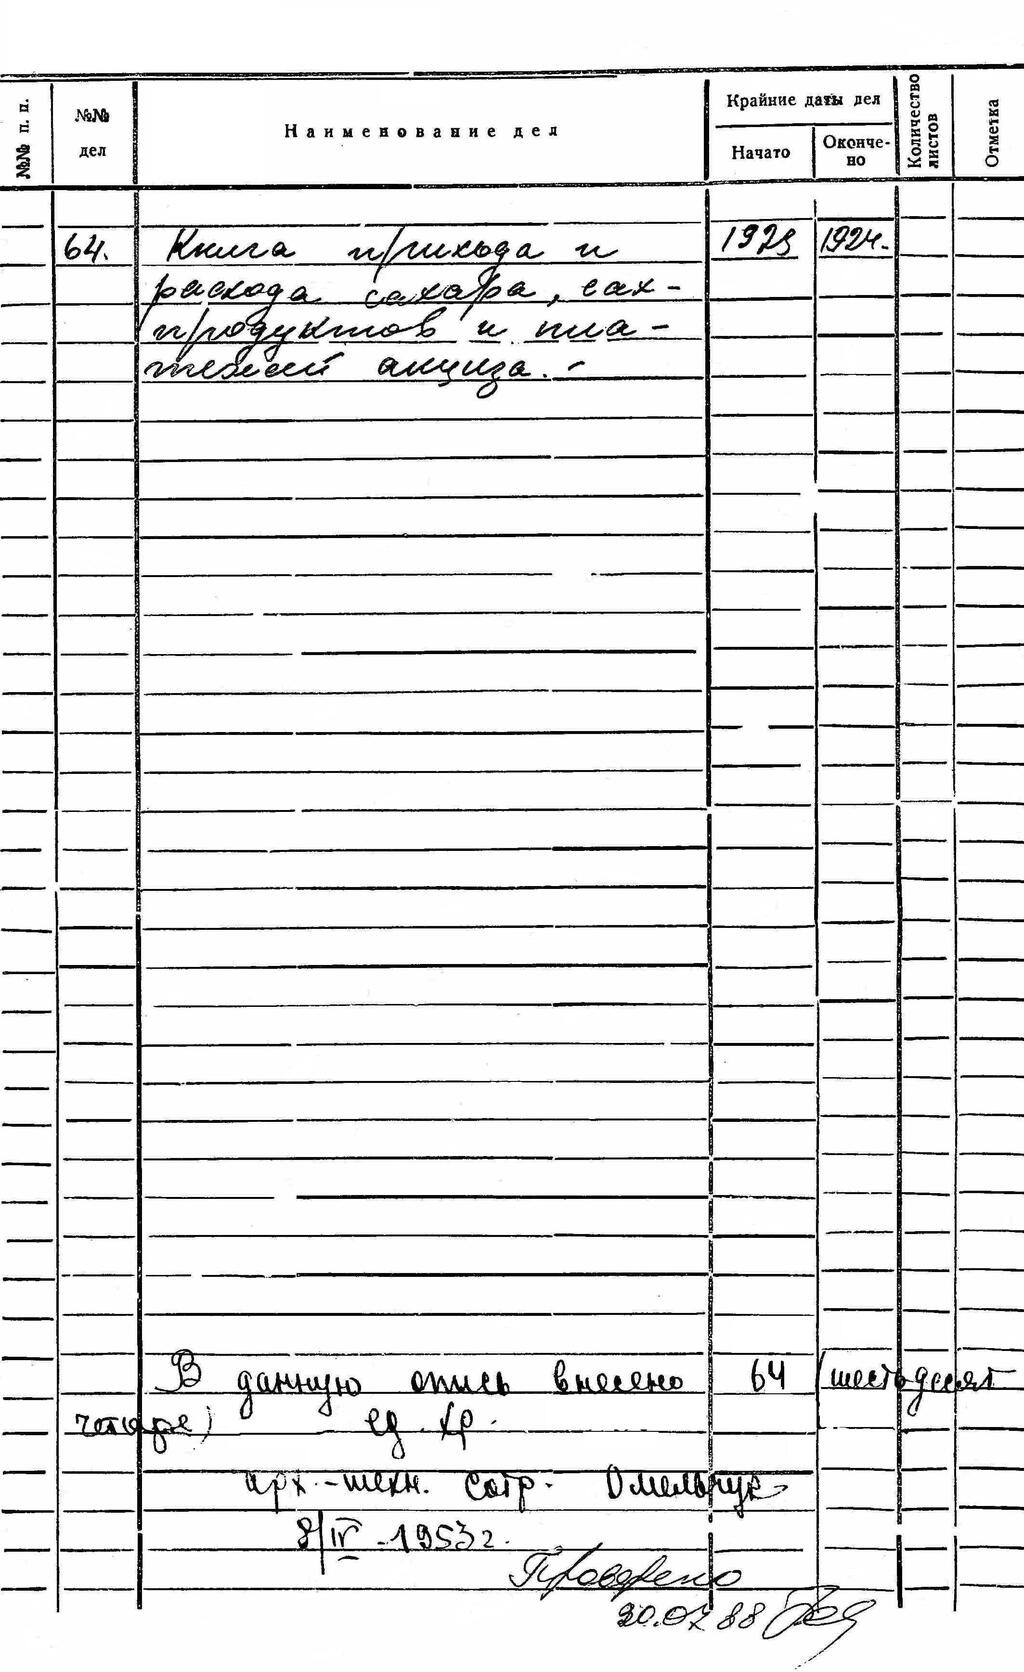 №№ п. п.
№№ дел
Наименование дел
Крайние даты дел
Начато
Окончено
Количество листов
Отметка
64. Книга прихода и 1923 1924.
расхода сахара, сах-
продуктов и пла-
тежей акциза. -
В данную опись внесено 64 (шестьдесят
четыре) ед. хр.
арх.-техн. сотр. Омельчук
8/IV - 1953 г.
Проверено
20.07.88